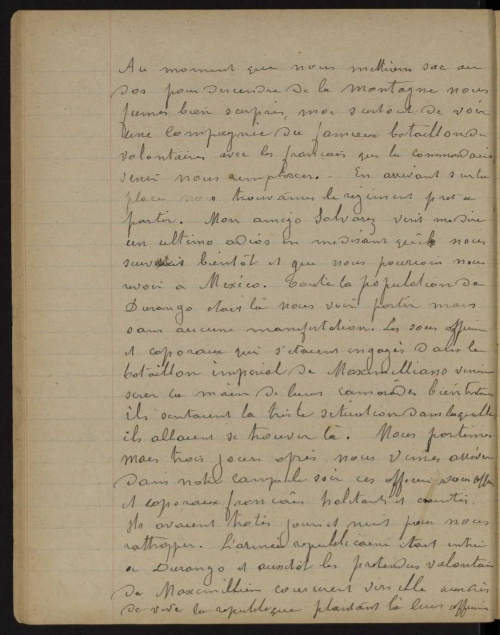 Au moment que nous mettions sac au
dos pour descendre de la montagne nous
fumes bien surpris, moi surtout de voir
une Compagnie du fameux bataillon de
volontaires avec les français qui la commandaie
venir nous remplacer. - En arrivant sur la
place nous trouvâmes le régiment pret a
partir. Mon amigo Salvarez vint me dire
un ultimo adios en me disant qu'il nous
bientôt et que nous pourrions nous
revoir a Mexico. Toute la population de
Durango etait là nous voir partir mais
sans aucune manifestation. Les sous officiers
et caporaux qui s'etaient engagés dans le
bataillon impérial de Maximilliano vinrent
serer la main de leurs camarades
ils sentaient la triste situation dans laquelle
ils allaient se trouver là. Nous partimes
mais trois jours après nous vimes arriver
dans notre camp le soir ces officiers sous offi
et caporaux français
Ils avaient trotés jour et nuit pour nous
rattraper. L'armée republicaine etait entrée
a Durango et aussitôt les pretendus volontair
de Maximillien coururent vers elle aux cris
de vive la republique plantant là leurs officiers